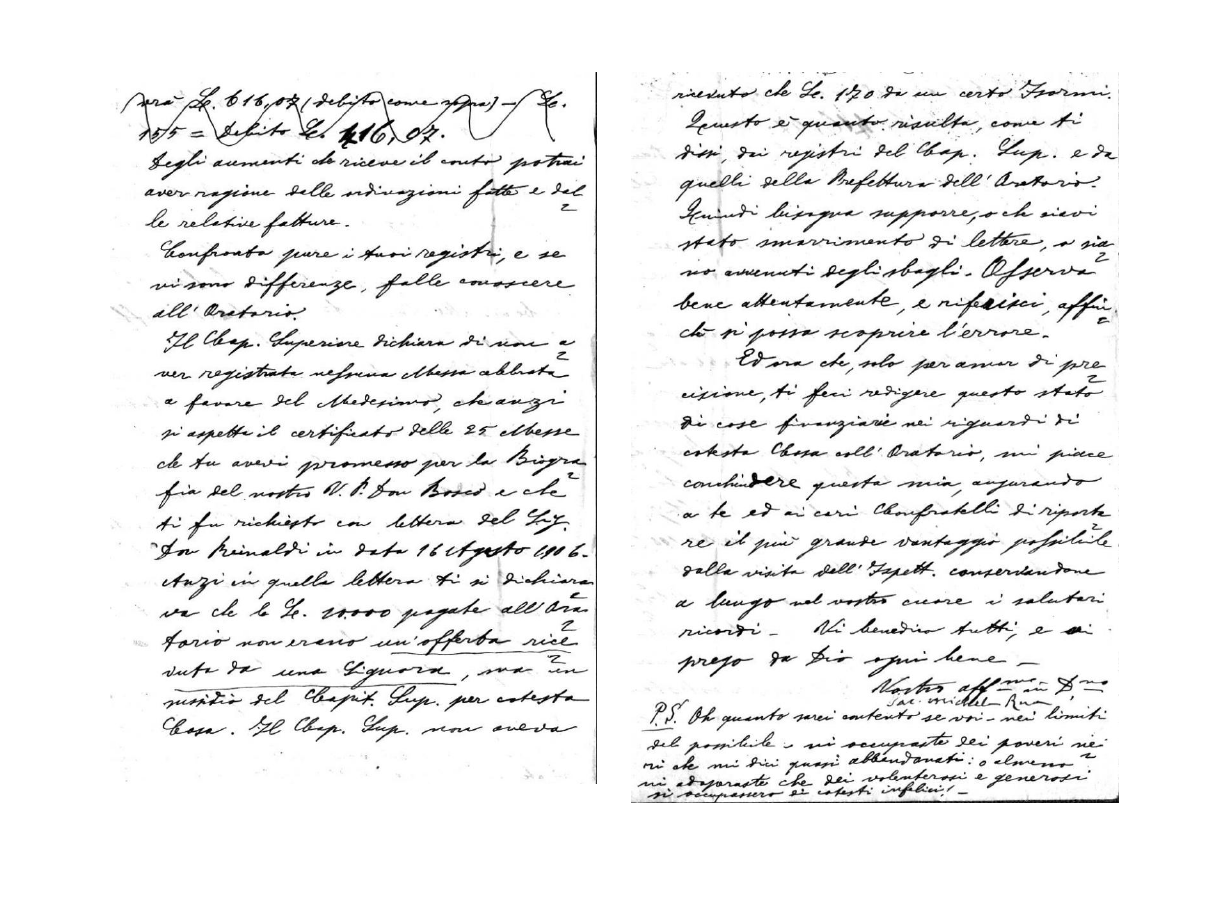 vrà Lr. 616,07 (debito come sopra) – Lr.
155 = debito Lr. 416,07.
Degli aumenti che riceve il conto potrai
aver ragione dalle ordinazioni fatte e dal
le relative fatture.
Confronta pure i tuoi registri, e se
vi sono differenze, falle conoscere
all'Oratorio.
Il Cap. Superiore dichiara di non a
ver registrata nessuna Messa celebrata
a favore del Medesimo, che anzi
si aspetta il certificato delle 25 Messe
che tu avevi promesso per la Biogra
fia del nostro V. P. Don Bosco e che
ti fu richiesto con lettera del Sig.
Don Rinaldi in data 16 Agosto 1906.
Anzi in quella lettera ti si dichiara
va che le Lr. 10.000 pagate all'Ora
torio non erano un'offerta rice
vuta da una Signora, ma un
sussidio del Capit. Sup. per cotesta
Casa. Il Cap. Sup. non aveva
ricevuto che Lr. 170 da un certo
Questo è quanto risulta, come ti
dissi, dai registri del Cap. Sup. e da
quelli della Prefettura dell'Oratorio.
Quindi bisogna supporre, o che siavi
stato smarrimento di lettere, o sia
no avvenuti degli sbagli. Osserva
bene attentamente, e riferisci, affin
chè si possa scoprire l'errore.
Ed ora che, solo per amor di pre
cisione, ti feci redigere questo stato
di cose finanziarie nei riguardi di
cotesta Casa coll'Oratorio, mi piace
conchiudere questa mia, augurando
a te ed ai cari Confratelli di riporta
re il più grande vantaggio possibile
dalla visita dell'Ispett. conservandone
a lungo nel vostro cuore i salutari
ricordi – Vi benedico tutti, e vi
prego da Dio ogni bene –
Vostro aff.mo in D.no
Sac. Michele Rua
P.S. Oh quanto sarei contento se voi – nei limiti
del possibile – vi occupaste dei poveri ne
ri che mi dici quasi abbandonati: o almeno
vi adoperaste che dei volenterosi e generosi
si occupassero di cotesti infelici! –